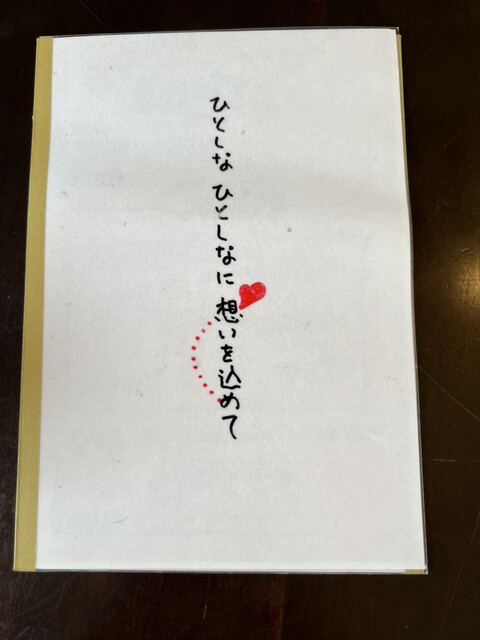 ひとしな ひとしなに 想いを込めて